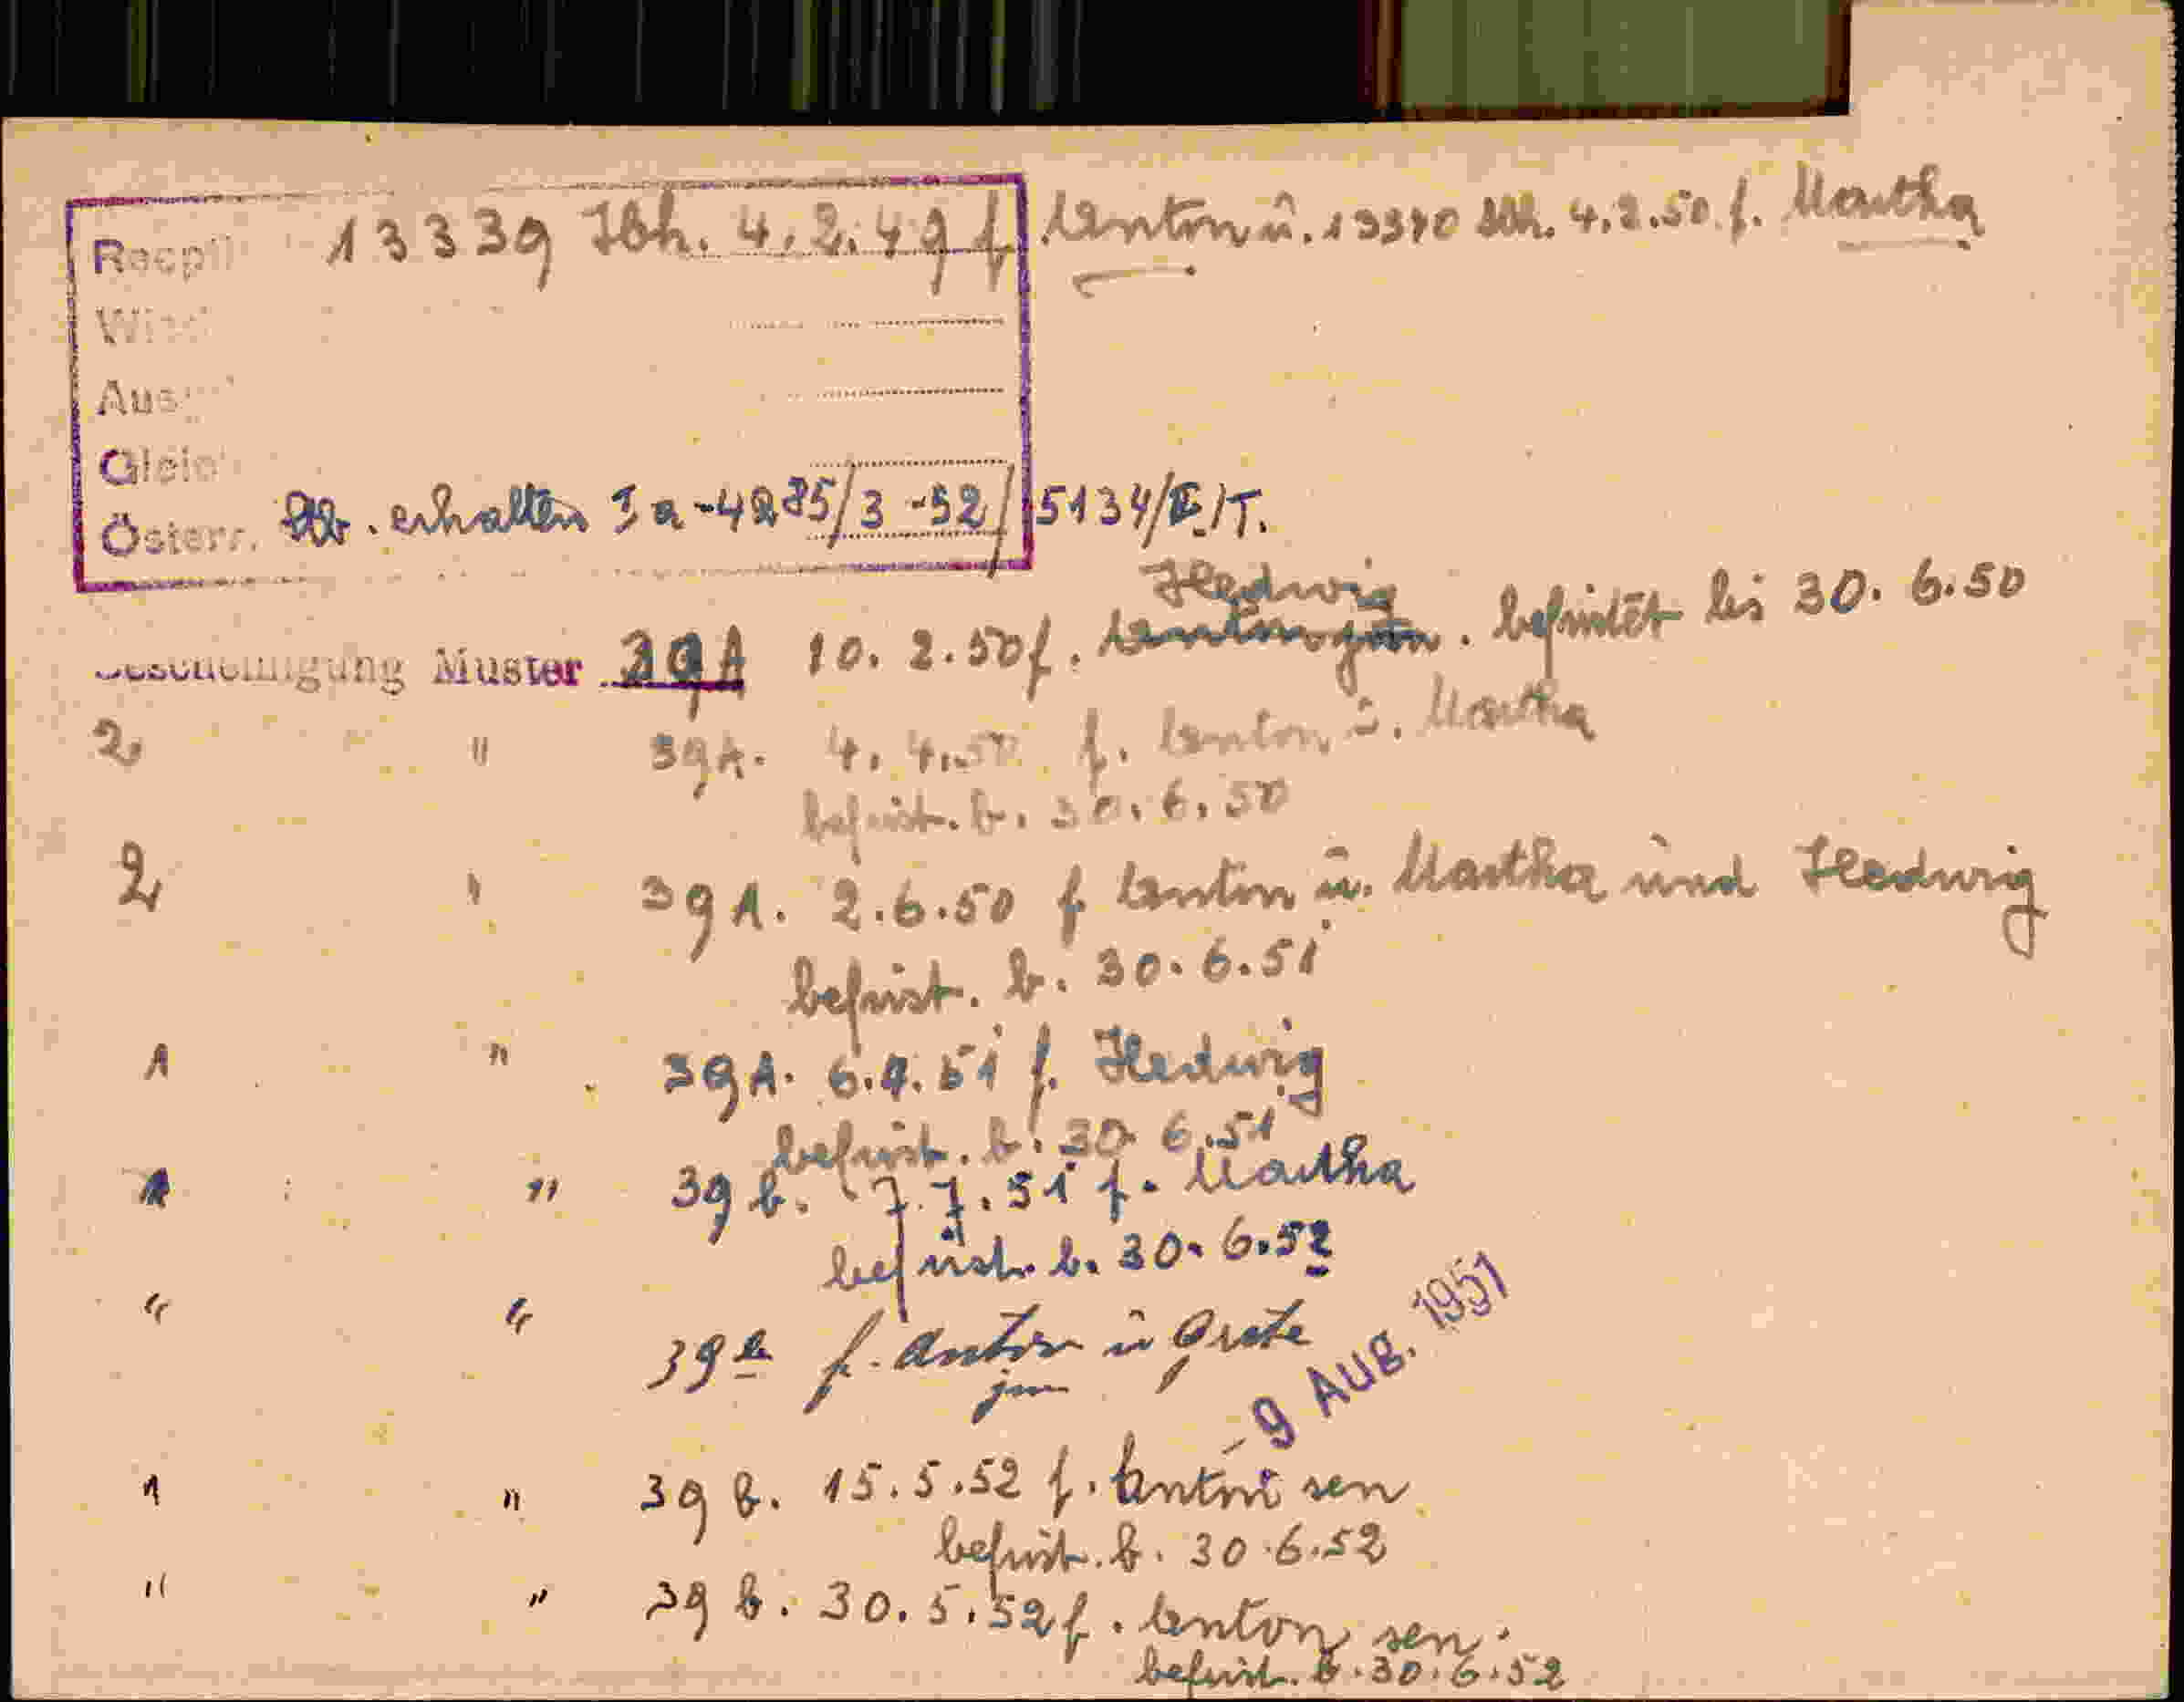 13339 Jbh. 4.2.49 f. Anton u. 13340 Jbh. 4.2.50 f. Martha
Österr. Stb. erhalten Ia-4285/3-52/5134/II/T.
Hedwig
Bescheinigung Muster 39A 10.2.50 f. befristet bis 30.6.50
2 " 39A. 4.4.50 f. Anton u. Martha
befrist. b. 30.6.50
2 " 39A. 2.6.50 f Anton u. Martha und Hedwig
befrist. b. 30.6.51
1 " 39A. 6.4.51 f. Hedwig
befrist. b. 30.6.51
1 " 39 b. 7.7.51 f. Martha
befrist. b. 30.6.52
" " 39 b f. Anton u Grete
jun
- 9 Aug. 1951
1 " 39 b. 15.5.52 f. Anton sen
befrist. b. 30.6.52
" " 39 b. 30.5.52 f. Anton sen.
befrist. b. 30.6.52